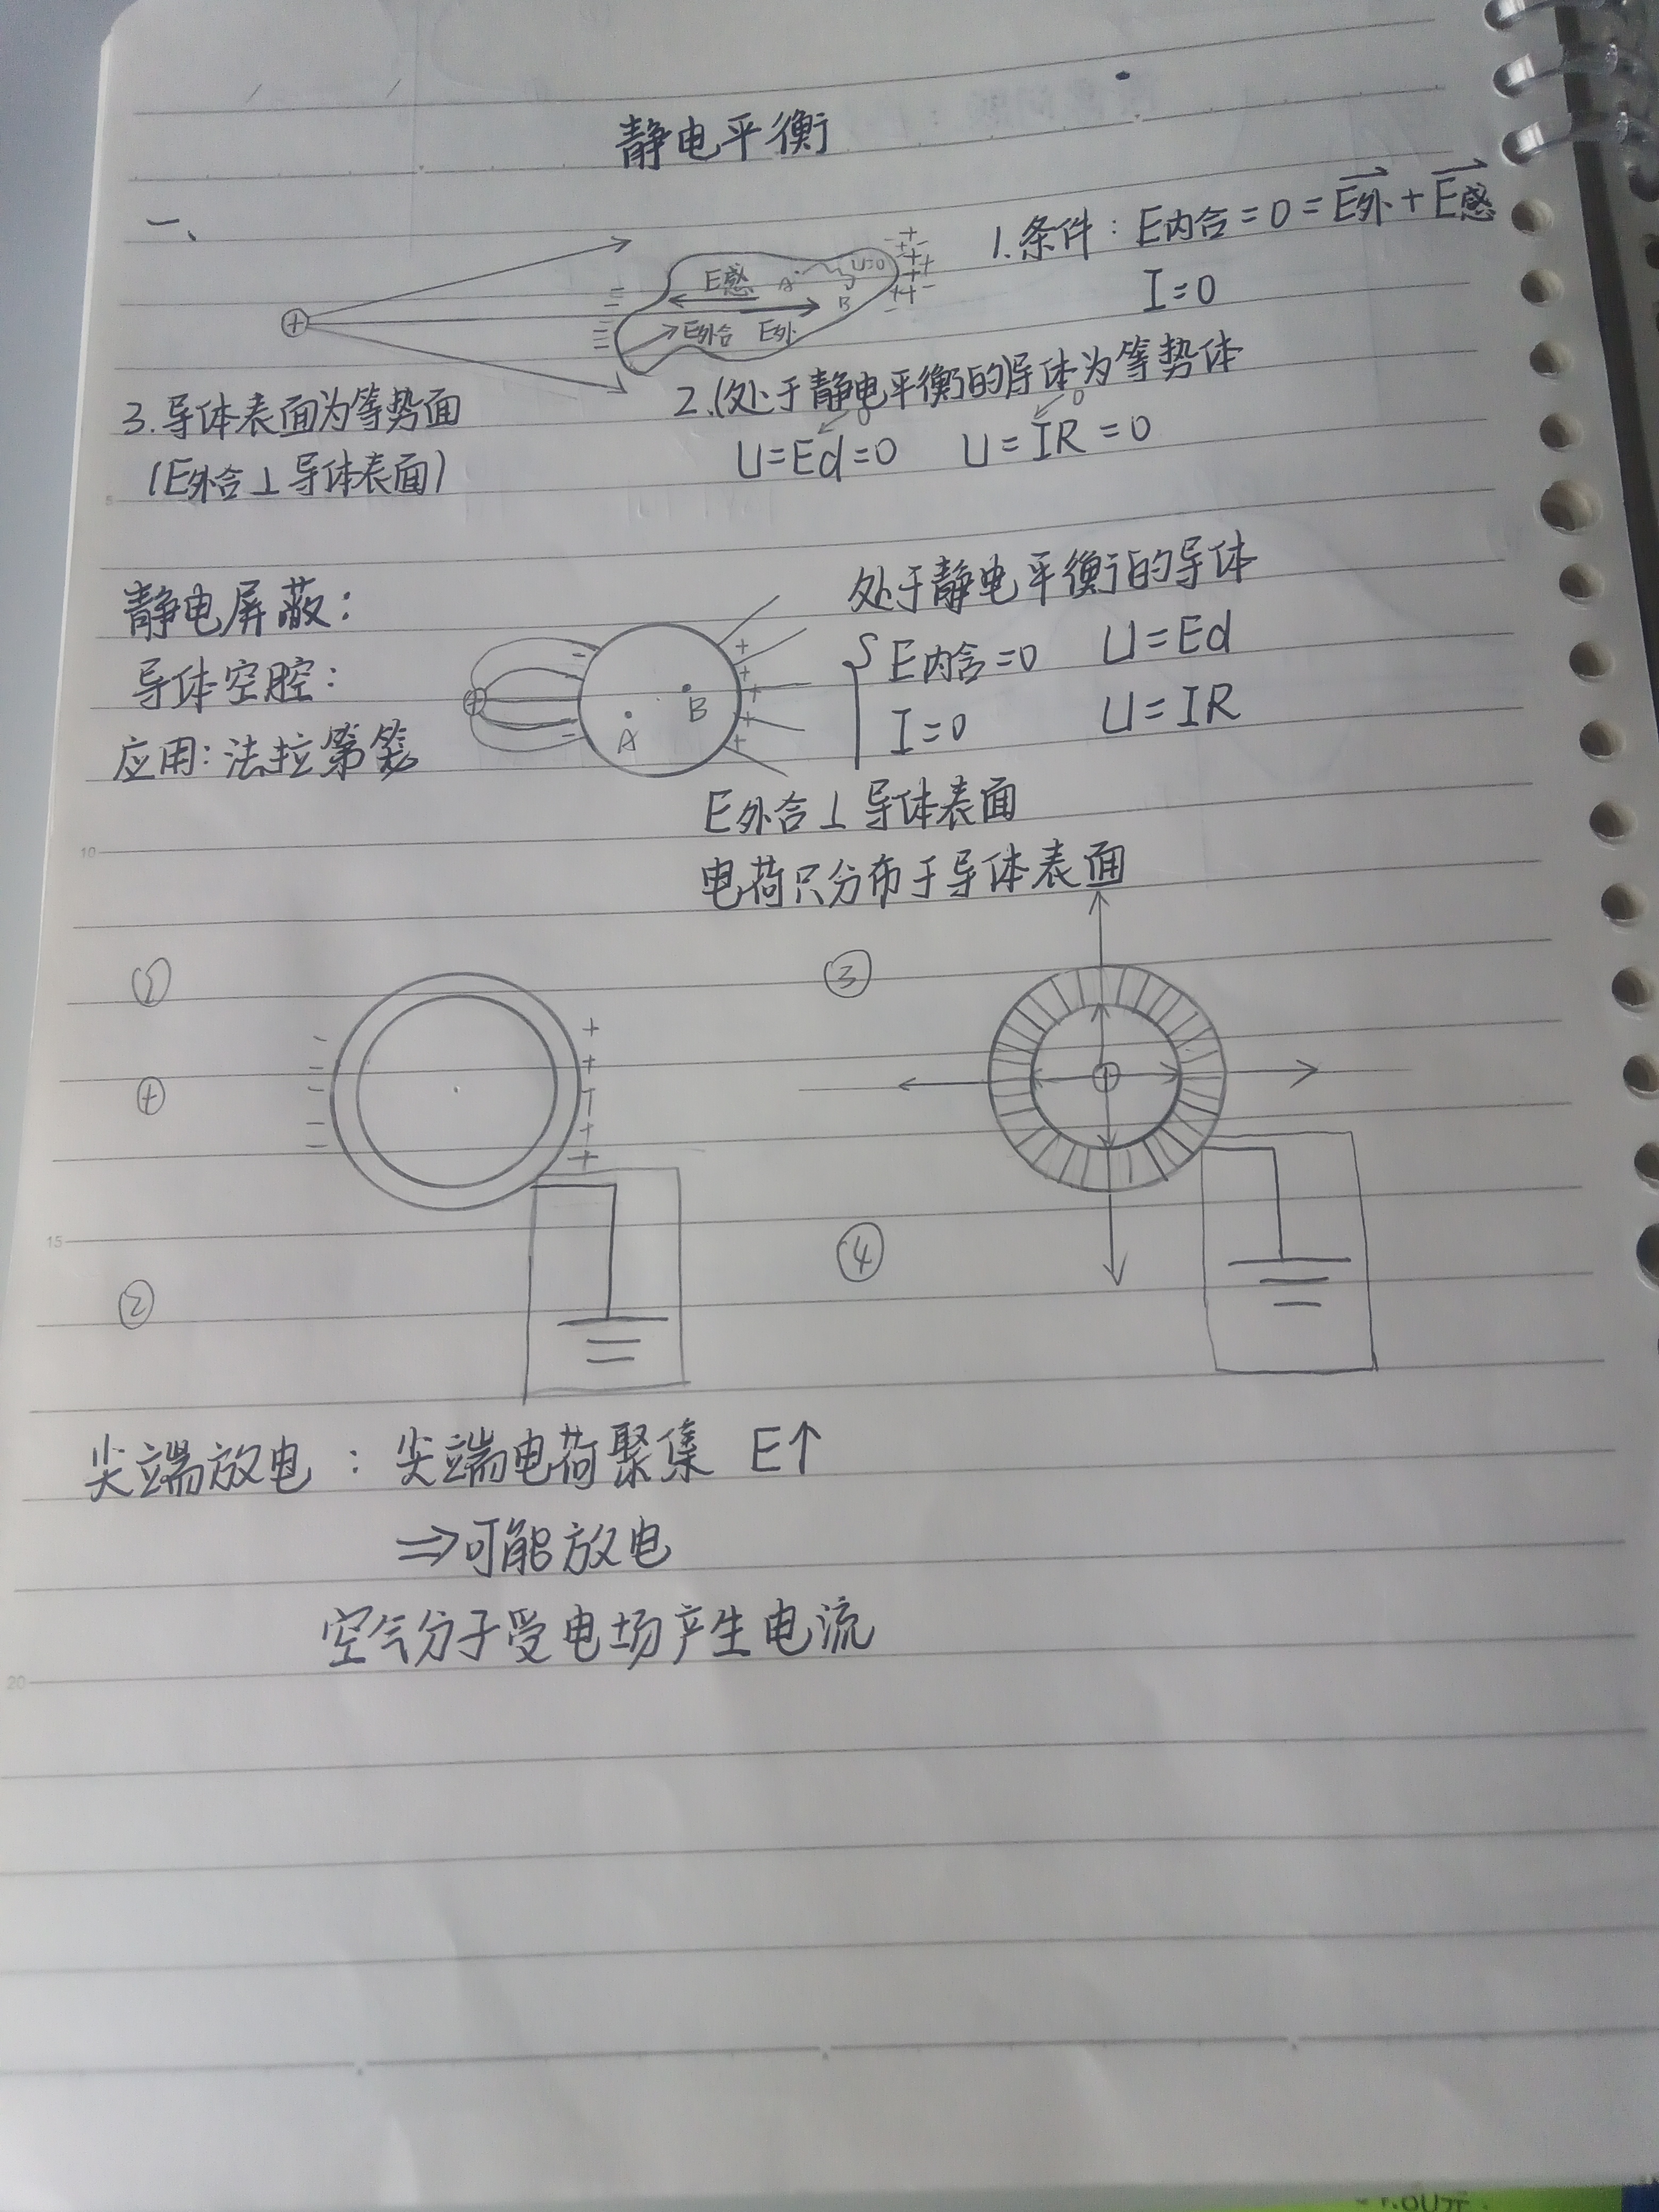 静电平衡
一、
1.条件：E内合=0=E外+E感
I=0
E感 A U=0
B
E外合 E外
3.导体表面为等势面
(E外合⊥导体表面)
2.(处于静电平衡的导体为等势体
0 0
U=Ed=0 U=IR=0
静电屏蔽：
导体空腔：
应用：法拉第笼
A B
处于静电平衡的导体
E内合=0 U=Ed
I=0 U=IR
E外合⊥导体表面
电荷只分布于导体表面
①
③
②
④
尖端放电：尖端电荷聚集 E↑
⇒可能放电
空气分子受电场产生电流
5
10
15
20